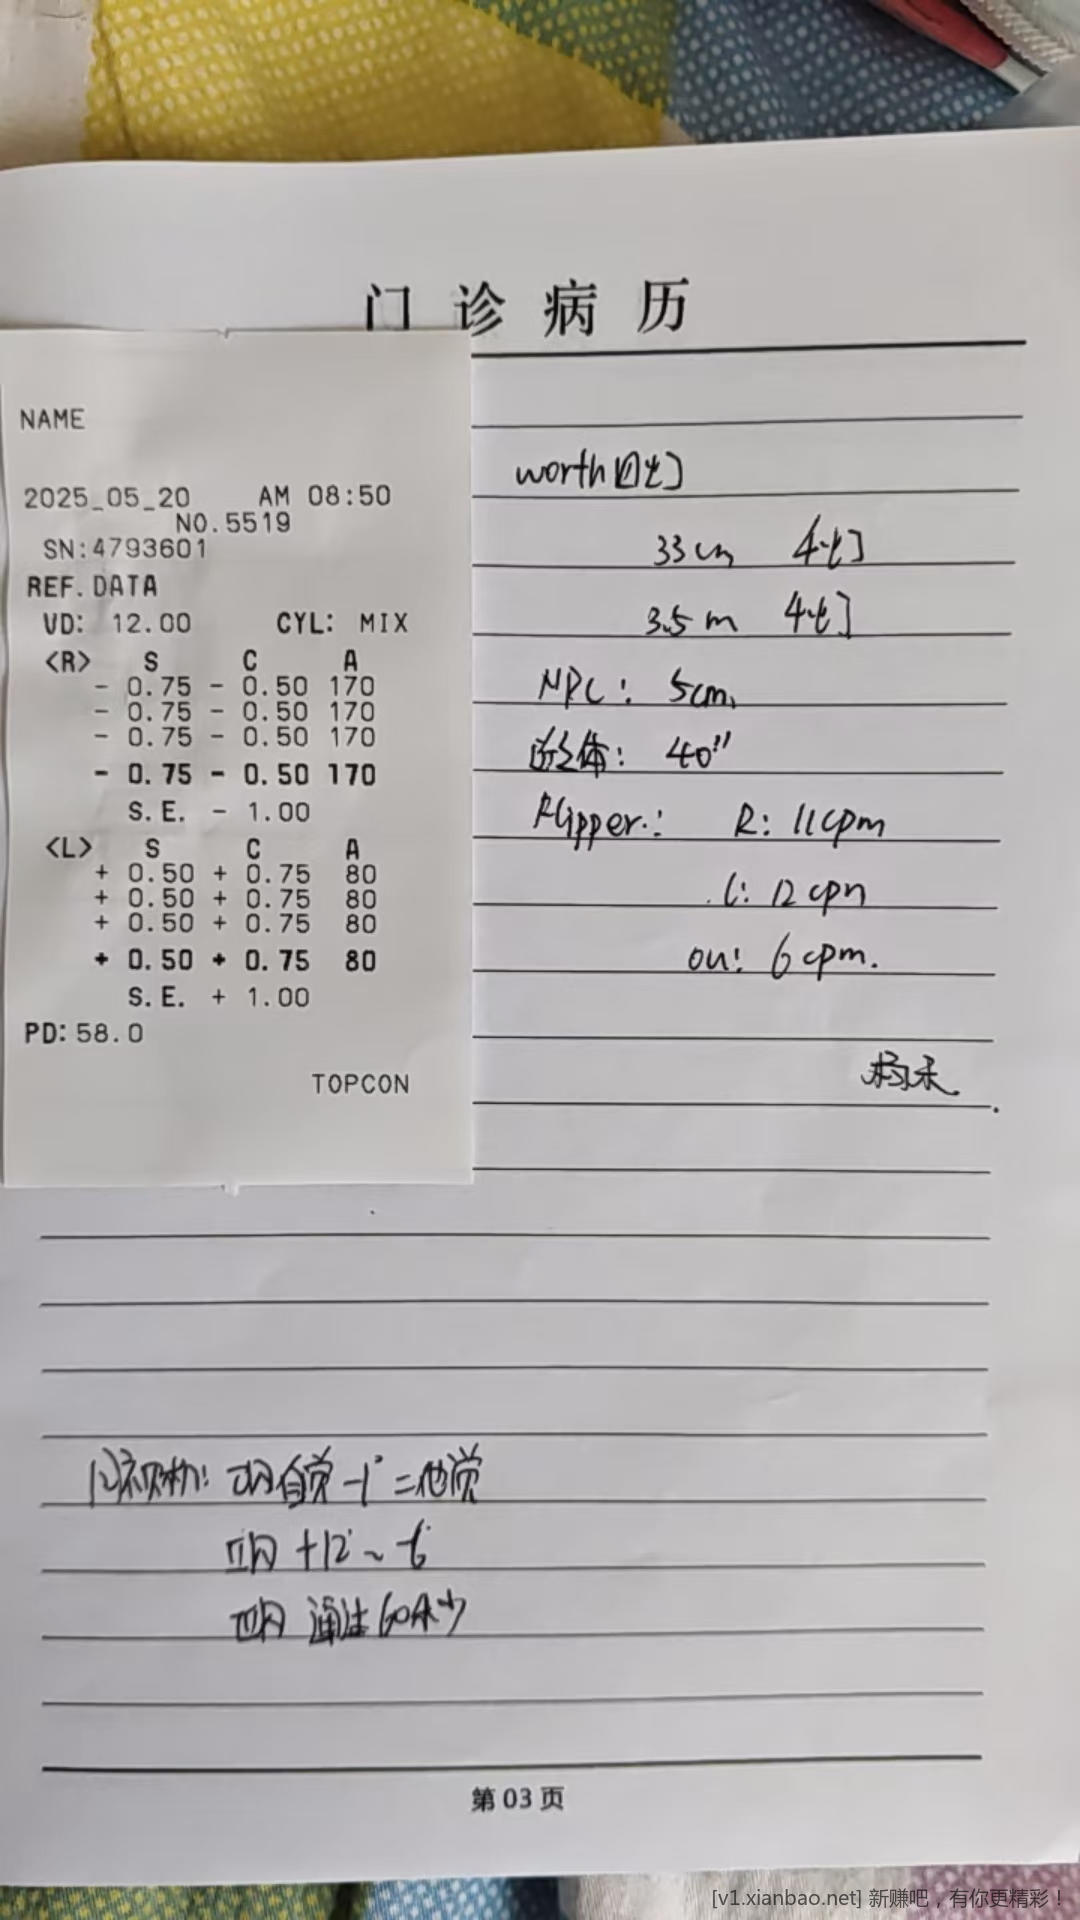 门诊病历
NAME
2025_05_20 AM 08:50
NO.5519
SN:4793601
REF.DATA
VD: 12.00 CYL: MIX
<R> S C A
- 0.75 - 0.50 170
- 0.75 - 0.50 170
- 0.75 - 0.50 170
- 0.75 - 0.50 170
S.E. - 1.00
<L> S C A
+ 0.50 + 0.75 80
+ 0.50 + 0.75 80
+ 0.50 + 0.75 80
+ 0.50 + 0.75 80
S.E. + 1.00
PD:58.0
TOPCON
worth四灯
33cm 4灯
3.5m 4灯
NPC: 5cm,
立体: 40"
Flipper.: R: 11cpm
L: 12cpm
ou: 6cpm.
同视机: 自觉 -1° = 他觉
+12° ~ -6°
第03页
[v1.xianbao.net] 新赚吧，有你更精彩！